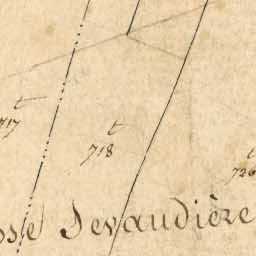 717 t
718 t
726 t
osse Devaudière